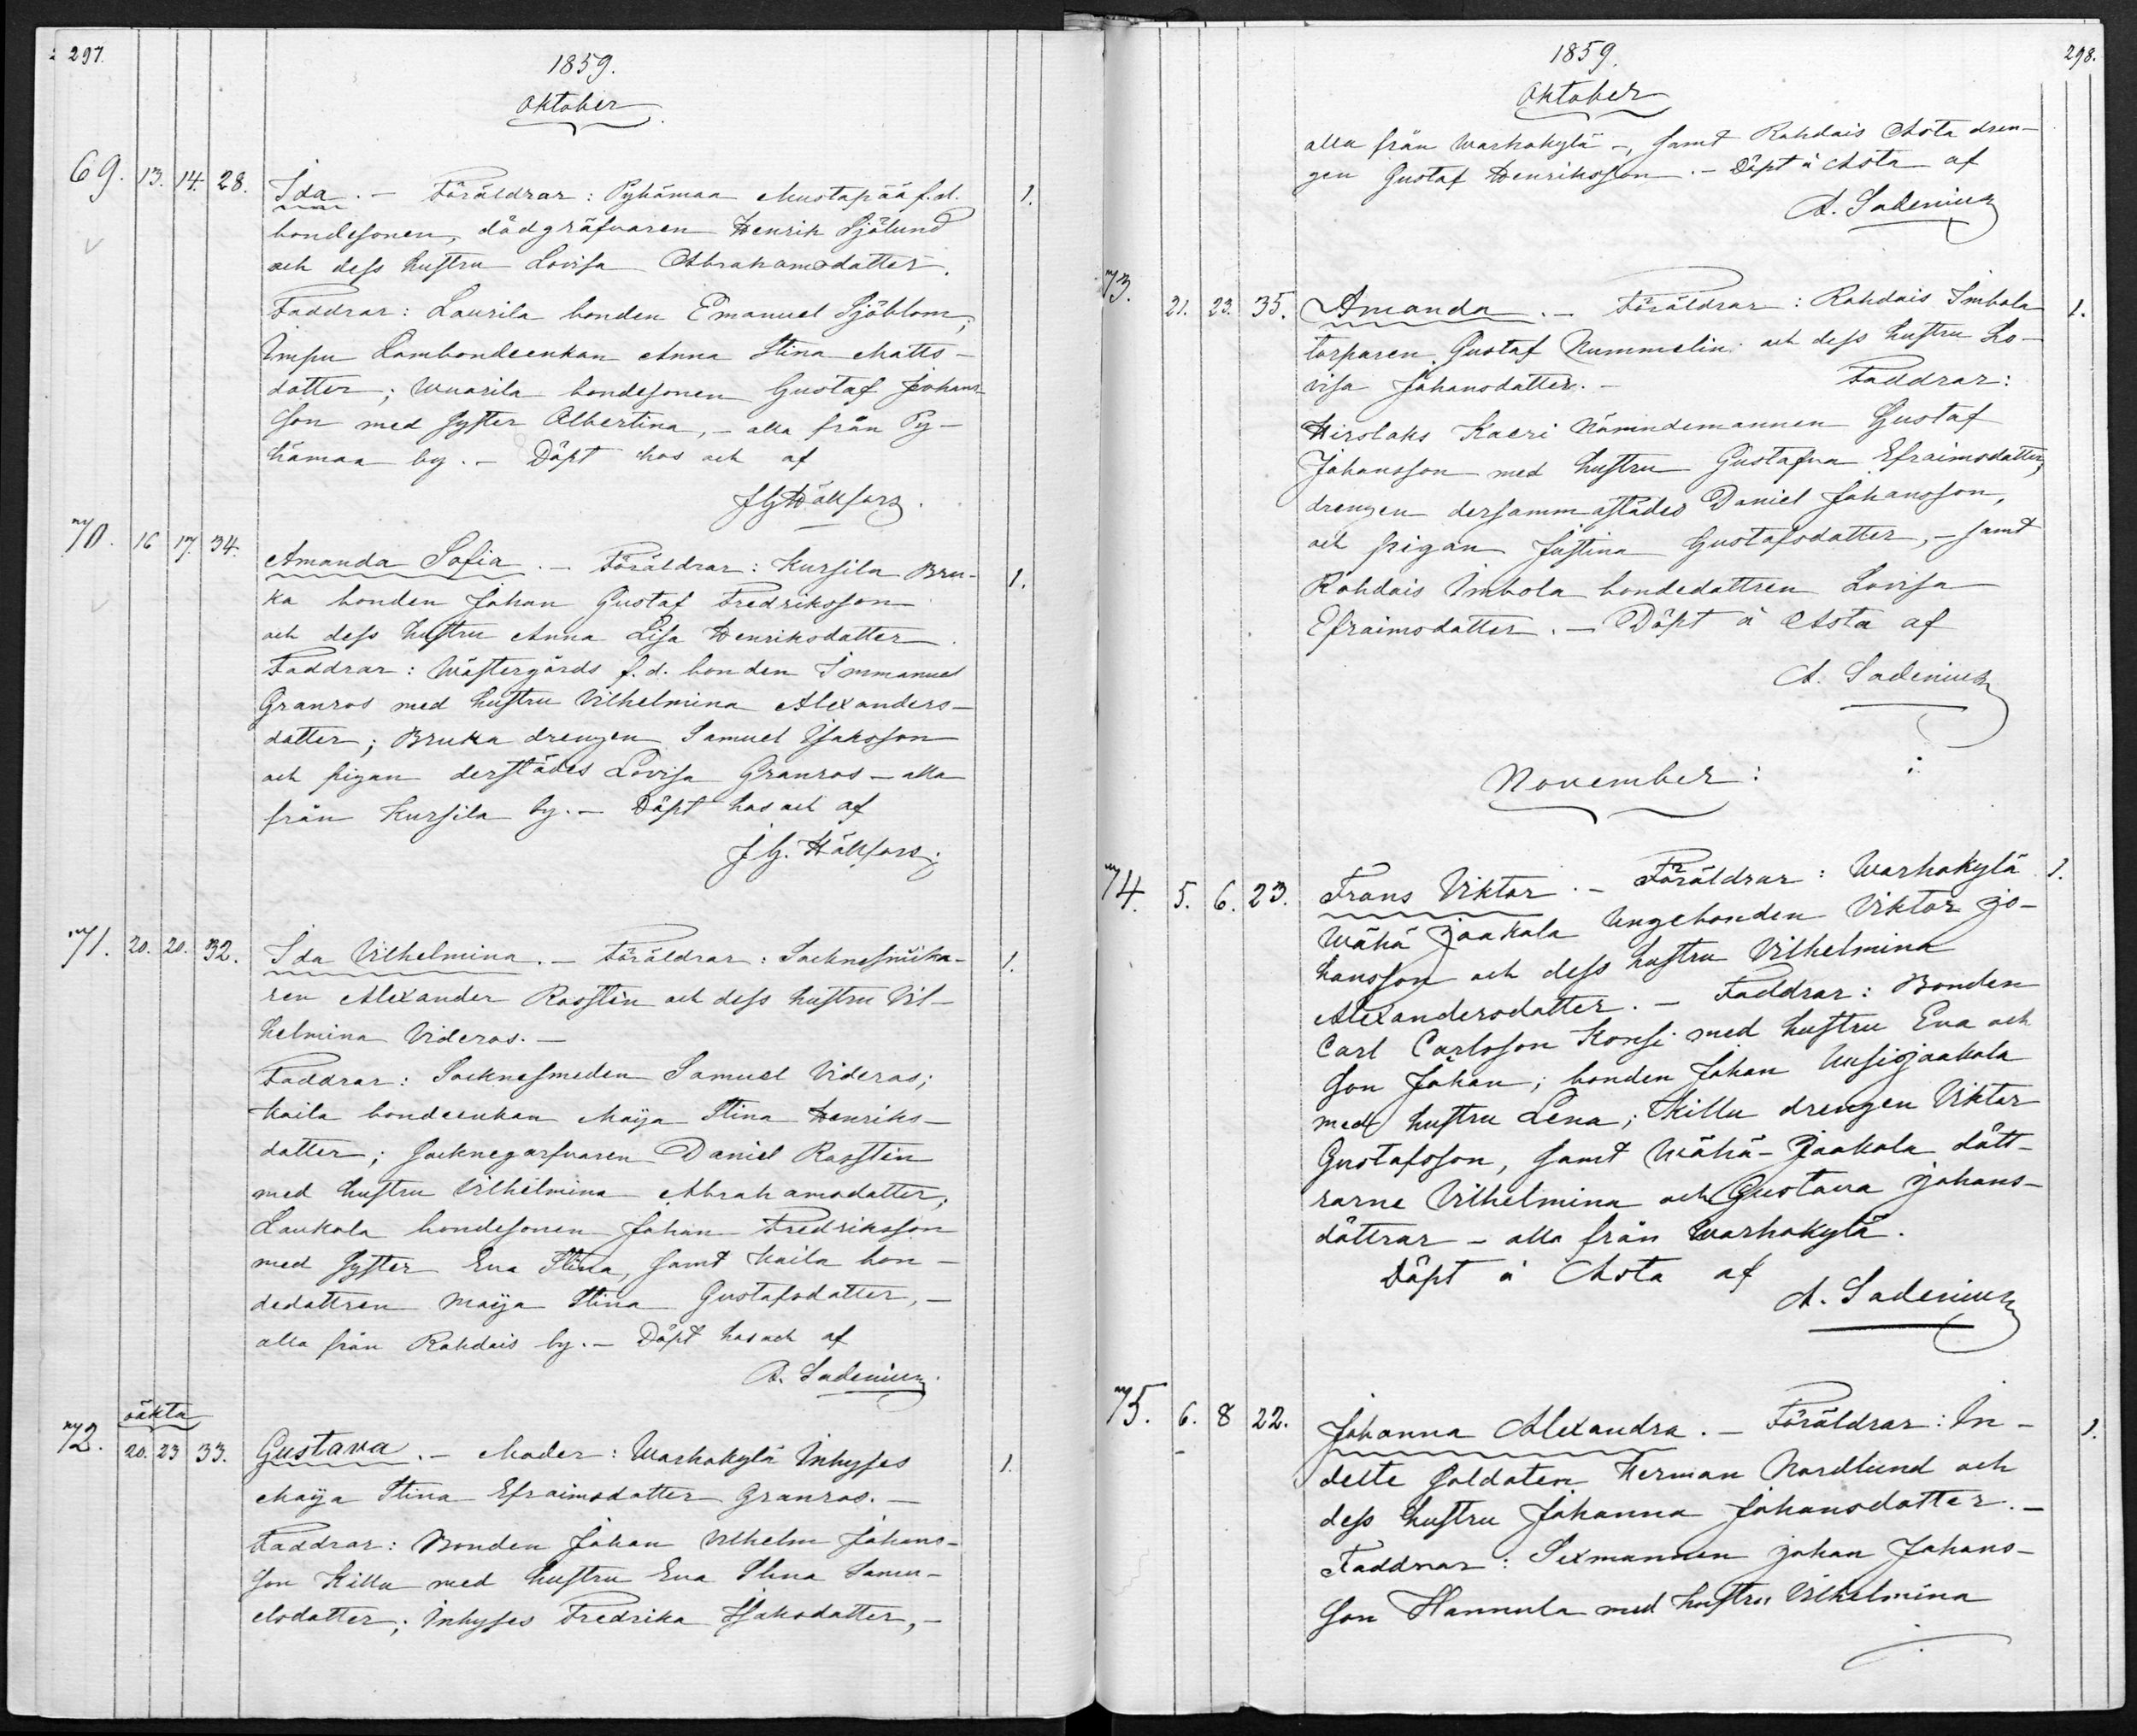 297.
1859.
Oktober
69. 13. 14. 28. Ida. – Föräldrar: Pyhämaa Mustapää f.d. 1.
bondesonen, dödgräfvaren Henrik Sjölund
och dess hustru Lovisa Abrahamsdatter.
Faddrar: Laurila bonden Emanuel Sjöblom;
Impu Lambondeenkan Anna Stina Matts-
datter; Wuorila bondesonen Gustaf Johans-
son med syster Albertina, – alla från Py-
hämaa by. – Döpt hos och af
J G Hällfors.
70. 16 17. 34. Amanda Sofia. – Föräldrar: Kursila Bru- 1.
ka bonden Johan Gustaf Fredriksson
och dess hustru Anna Lisa Henriksdatter.
Faddrar: Wästergårds f.d. bonden Immanuel
Granros med hustru Vilhelmina Alexanders-
datter; Bruka drengen Samuel Isaksson
och pigan derstädes Lovisa Granros – alla
från Kursila by. – Döpt hos och af
J G. Hällfors.
71. 20. 20. 32. Ida Vilhelmina. – Föräldrar: Socknesnicka- 1.
ren Alexander Rosstén och dess hustru Vil-
helmina Videros. –
Faddrar: Socknesmeden Samuel Videros;
Kaila bondeenkan Maija Stina Henriks-
datter; Socknegarfvaren Daniel Rosstén
med hustru Vilhelmina Abrahamsdatter;
Laukola bondesonen Johan Fredriksson
med syster Eva Stina, samt Kaila bon-
dedattren Maija Stina Gustafsdatter, –
alla från Rahdais by. – Döpt hos och af
A. Sadenius.
oäkta
72. 20. 23 33. Gustava. – Moder: Warhokylä Inhyses 1.
Maija Stina Efraimsdatter Granros. –
Faddrar: Bonden Johan Vilhelm Johans-
son Killu med hustru Eva Stina Samu-
elsdatter; Inhyses Fredrika Isaksdatter, –
1859.
298.
Oktober
alla från Warhokylä –, samt Rahdais Asta dren-
gen Gustaf Henriksson. – Döpt å Asta af
A. Sadenius
73. 21. 23. 35. Amanda. – Föräldrar: Rahdais Imbola 1.
torparen Gustaf Nummelin och dess hustru Lo-
visa Johansdatter. – Faddrar:
Hirslaks Kaeri Nämndemannen Gustaf
Johansson med hustru Gustafva Efraimsdatter,
drengen dersammastädes Daniel Johansson,
och pigan Justina Gustafsdatter, – samt
Rahdais Imbola bondedattren Lovisa
Efraimsdatter. – Döpt å Asta af
A. Sadenius
November:
74. 5. 6. 23. Frans Viktor. – Föräldrar: Warhokylä 1.
Wähä Jaakola Ungebonden Viktor Jo-
hansson och dess hustru Vilhelmina
Alexandersdatter. – Faddrar: Bonden
Carl Carlsson Konsi med hustru Eva och
son Johan; bonden Johan Uusijaakola
med hustru Lena; Killu drengen Viktor
Gustafsson, samt Wähä-Jaakola dått-
rarne Vilhelmina och Gustava Johans-
dåttrar – alla från Warhokylä.
Döpt å Asta af
A. Sadenius
75. 6. 8 22. Johanna Alexandra. – Föräldrar: In- 1.
delte Soldaten Herman Nordlund och
dess hustru Johanna Johansdatter. –
Faddrar: Sexmannen Johan Johans-
son Hannula med hustru Vilhelmina